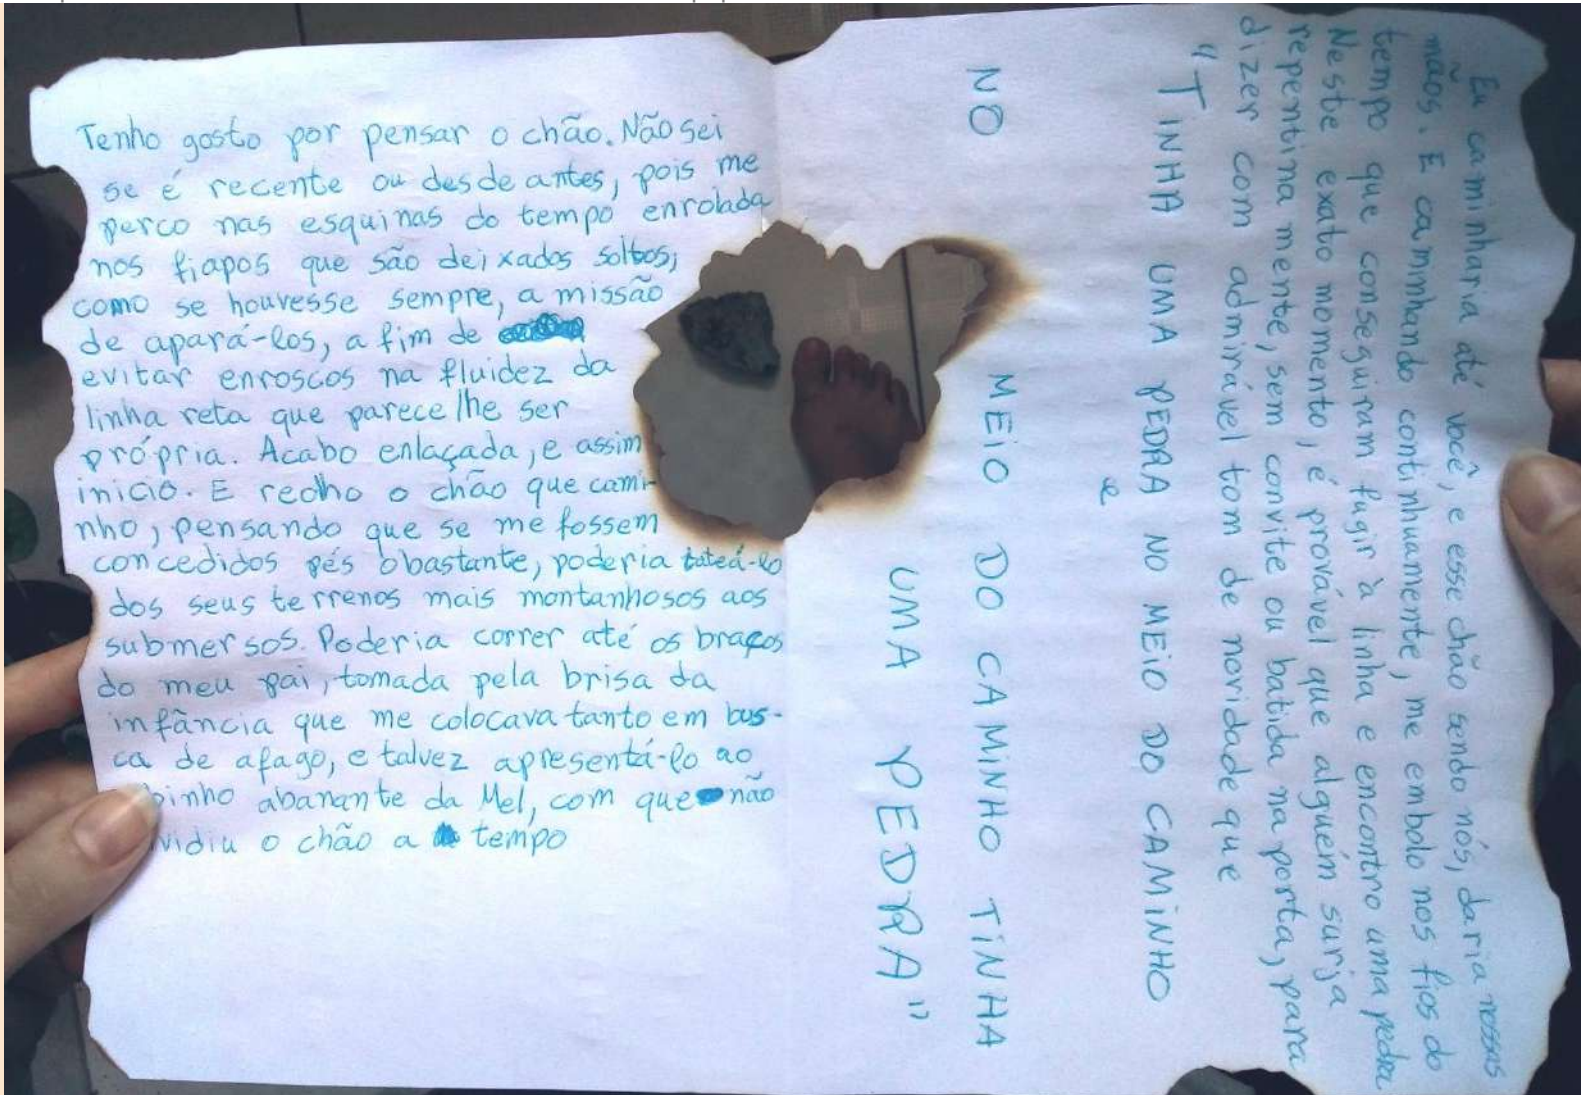 Tenho gosto por pensar o chão. Não sei
se é recente ou desde antes, pois me
perco nas esquinas do tempo enrolada
nos fiapos que são deixados soltos,
como se houvesse sempre, a missão
de apará-los, a fim de
evitar enroscos na fluidez da
linha reta que parece lhe ser
própria. Acabo enlaçada, e assim
inicio. E recolho o chão que cami-
nho, pensando que se me fossem
concedidos pés obastante, poderia tateá-lo
dos seus terrenos mais montanhosos aos
submersos. Poderia correr até os braços
do meu pai, tomada pela brisa da
infância que me colocava tanto em bus-
ca de afago, e talvez apresentá-lo ao
binho abanante da Mel, com que não
vidiu o chão a tempo
Eu caminharia até você, e esse chão sendo nós, daria nossas
mãos. E caminhando continuamente, me embolo nos fios do
tempo que conseguiram fugir à linha e encontro uma pedra
Neste exato momento, é provável que alguém surja
repentinamente, sem convite ou batida na porta, para
dizer com admirável tom de novidade que
"TINHA UMA PEDRA NO MEIO DO CAMINHO
e
NO MEIO DO CAMINHO TINHA
UMA PEDRA"